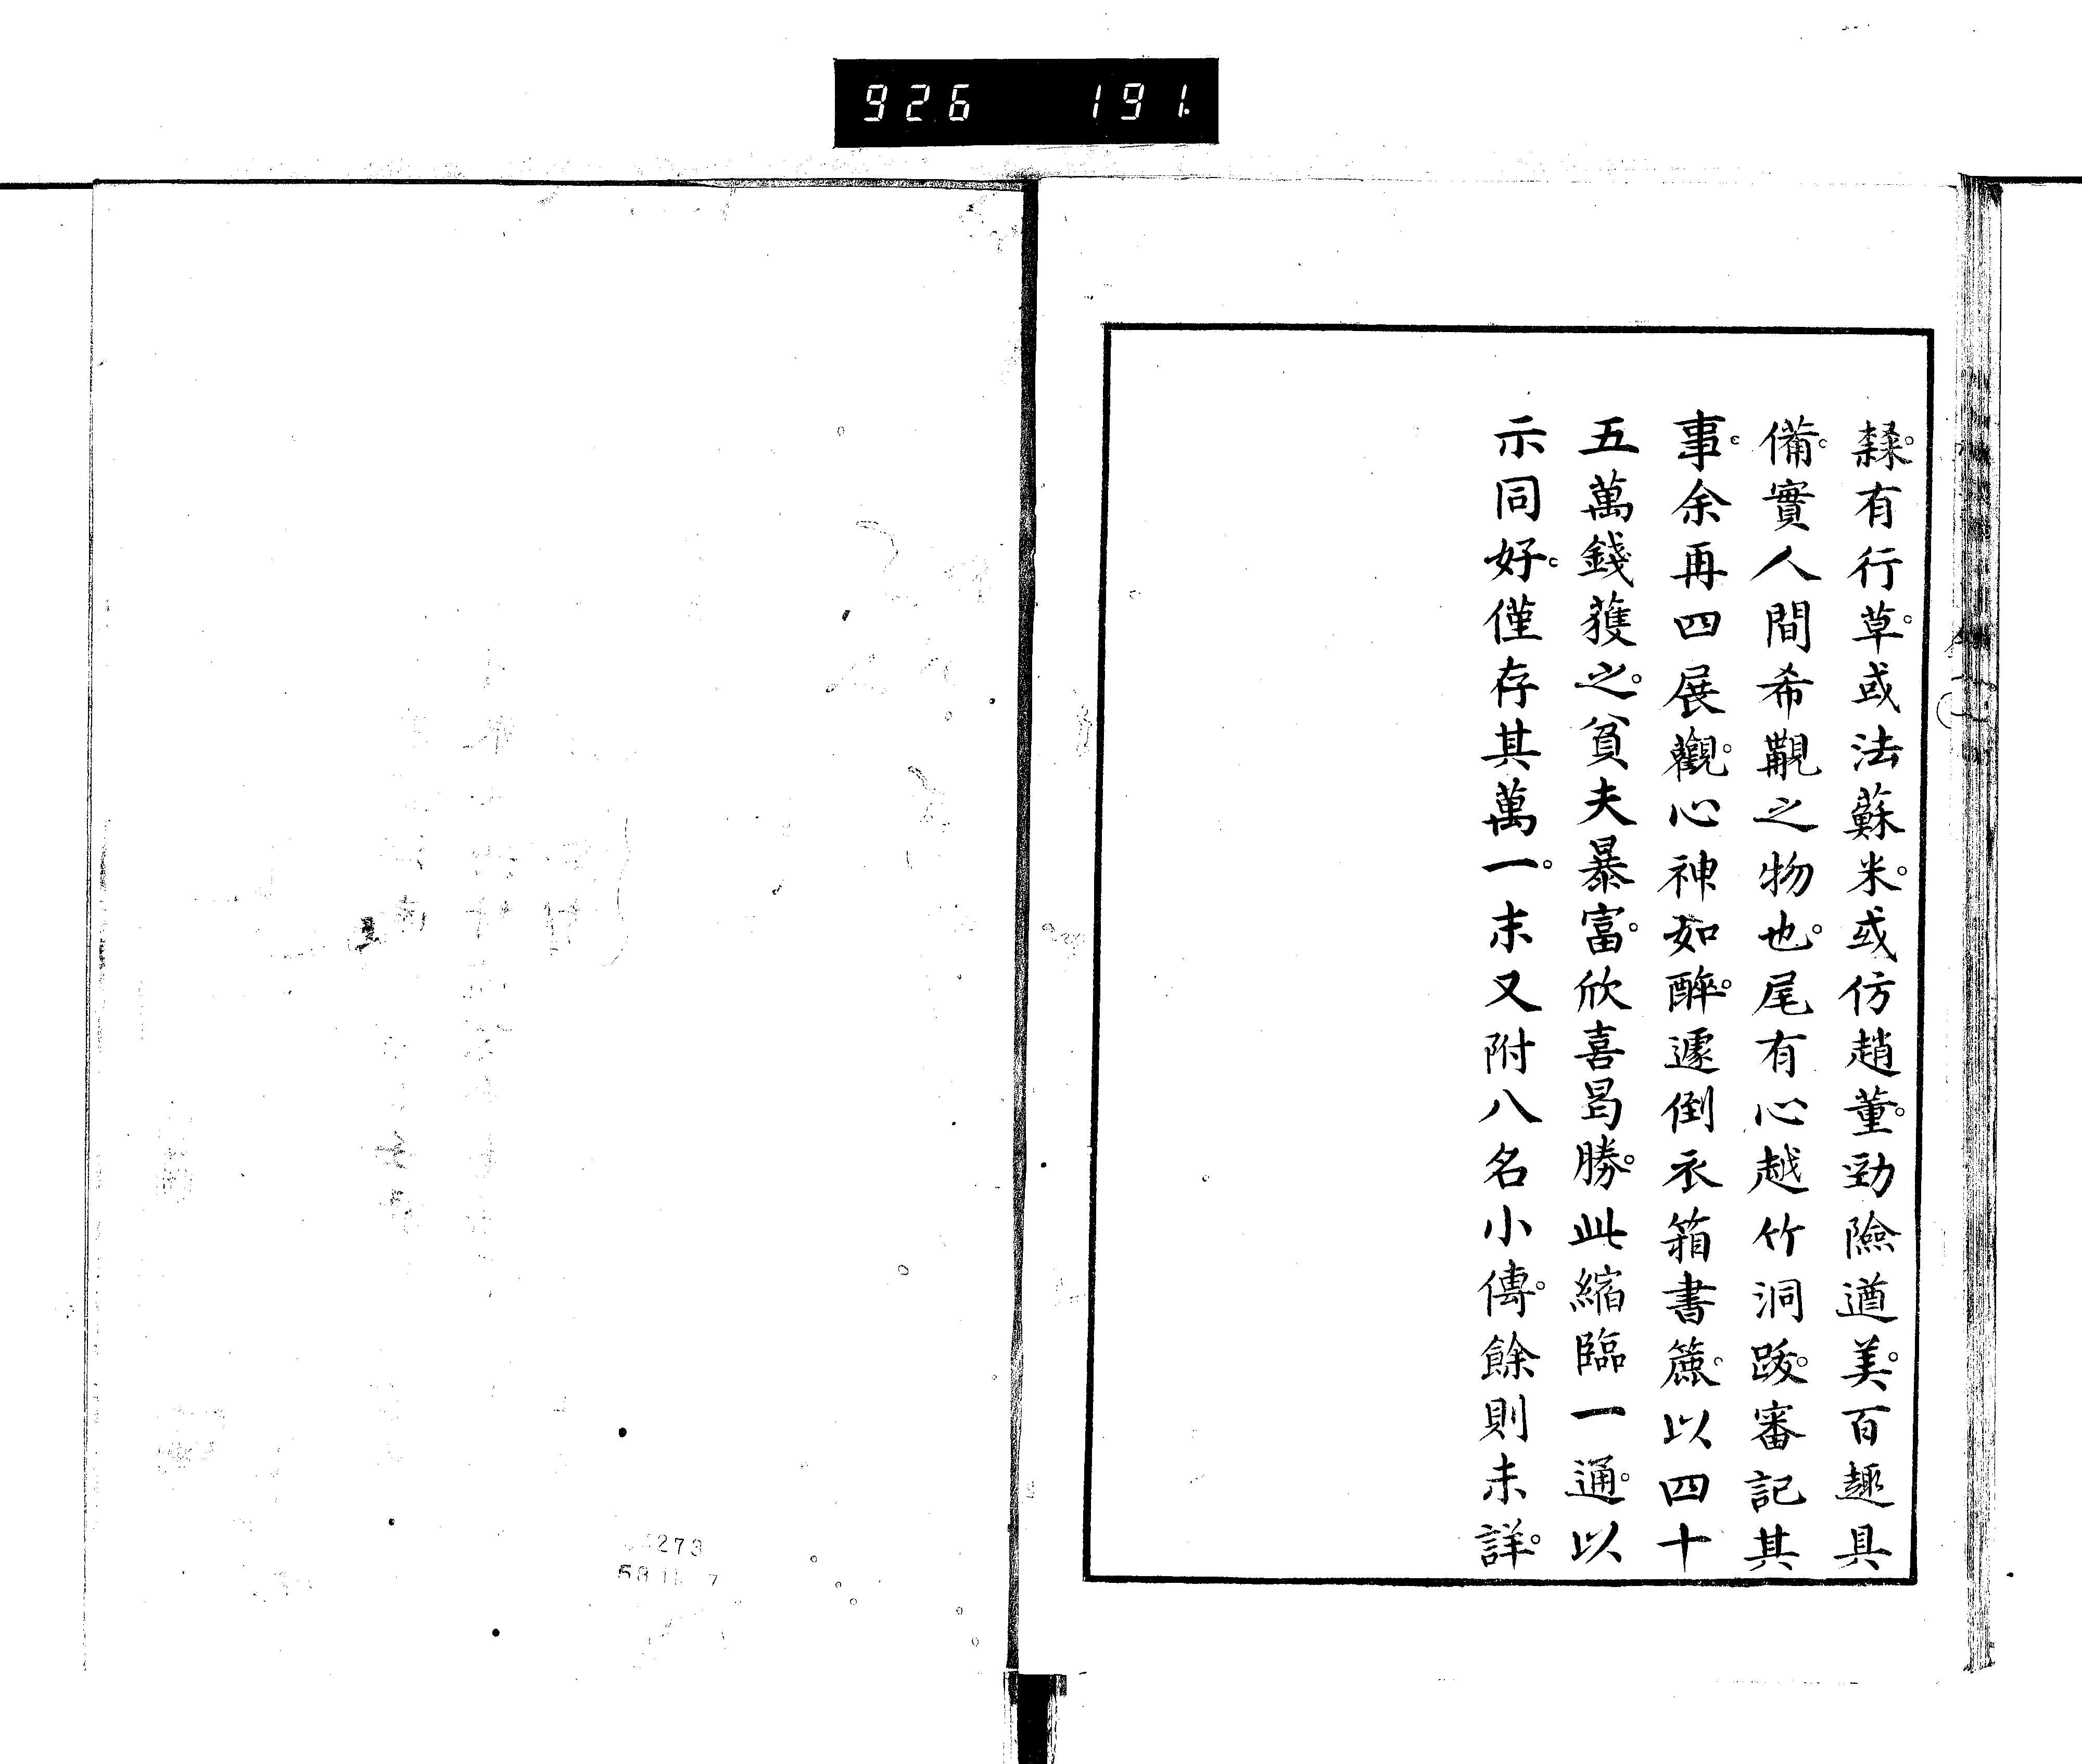 926 191
隸。有行草。或法蘇米。或仿趙董。勁險遒美。百趣具
備。實人間希覯之物也。尾有心越竹洞跋。審記其
事。余再四展觀。心神如醉。遽倒衣箱書簏。以四十
五萬錢獲之。貧夫暴富。欣喜曷勝。此縮臨一通。以
示同好。僅存其萬一。末又附八名小傳。餘則未詳。